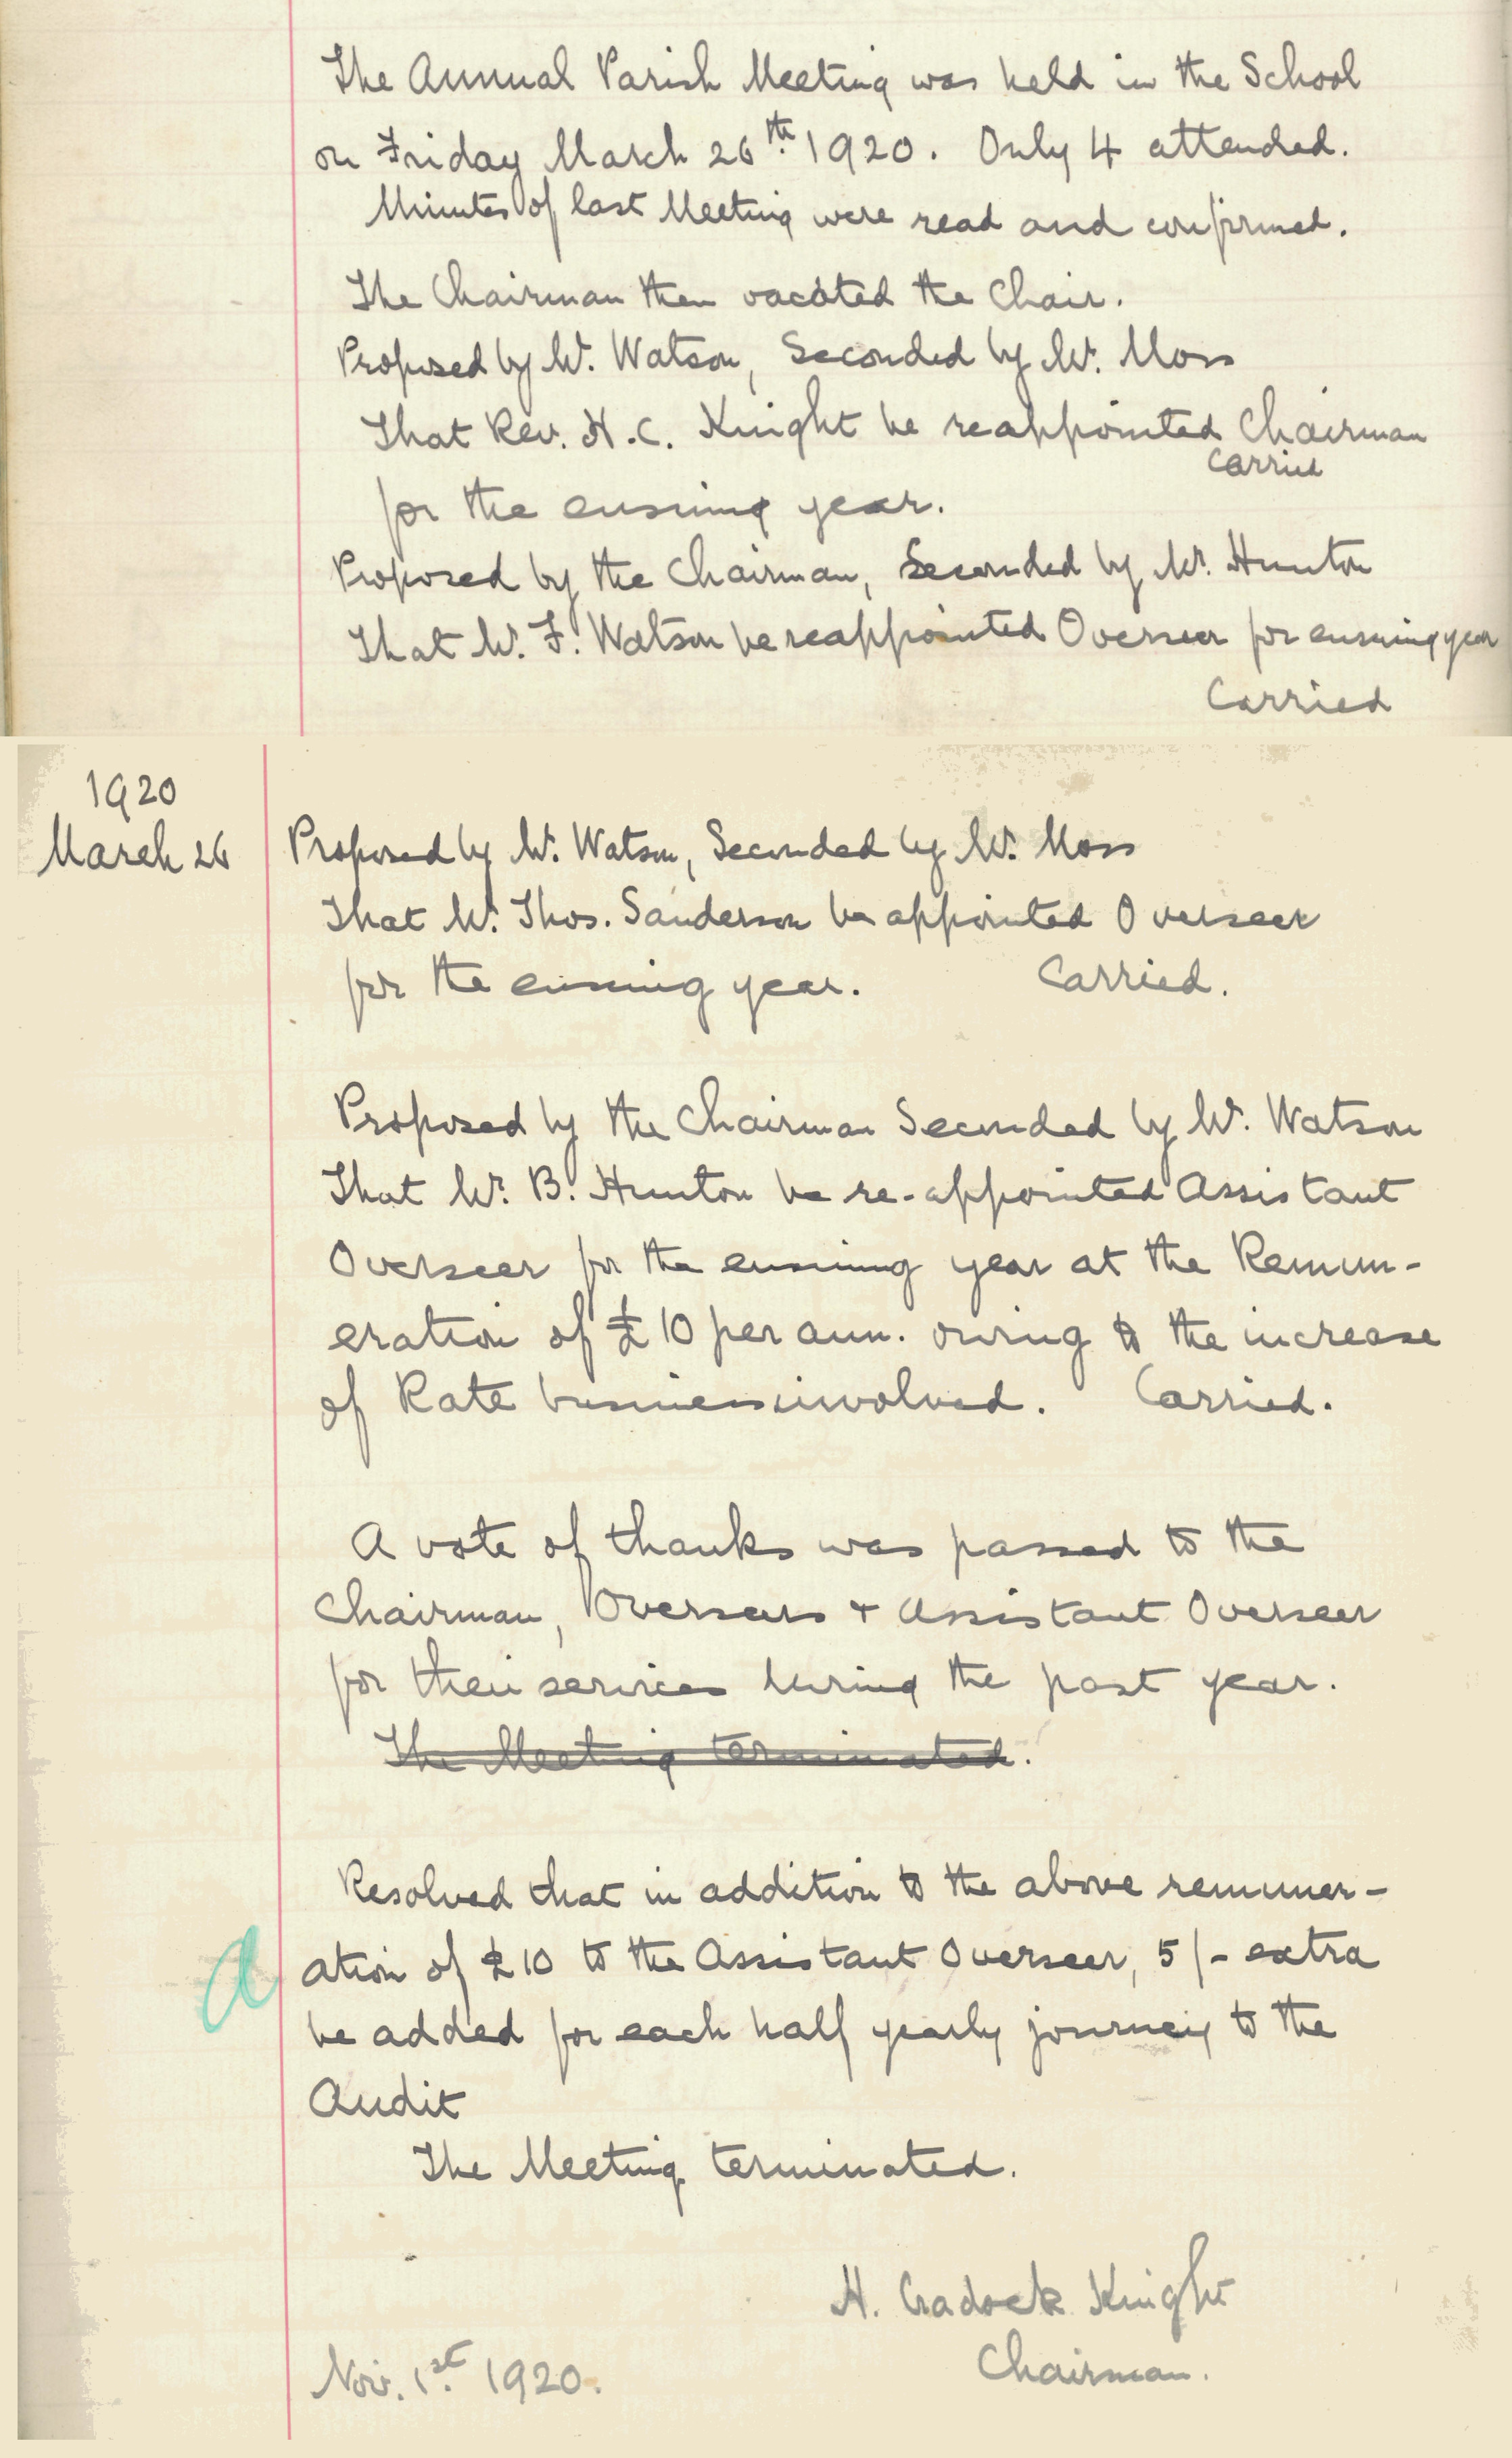 The Annual Parish Meeting was held in the School
on Friday March 26th 1920. Only 4 attended.
Minutes of last Meeting were read and confirmed.
The Chairman then vacated the Chair.
Proposed by Mr. Watson, Seconded by Mr. Moss
That Rev. H. C. Knight be reappointed Chairman
Carried
for the ensuing year.
Proposed by the Chairman, Seconded by Mr. Hunton
That Mr. F. Watson be reappointed Overseer for ensuing year
Carried
1920
March 26
Proposed by Mr. Watson, Seconded by Mr. Moss
That Mr. Thos. Sanderson be appointed Overseer
for the ensuing year. Carried.
Proposed by the Chairman Seconded by Mr. Watson
That Mr. B. Hunton be re-appointed Assistant
Overseer for the ensuing year at the Remun-
eration of £10 per ann. owing to the increase
of Rate business involved. Carried.
A vote of thanks was passed to the
Chairman, Overseers + Assistant Overseer
for their services during the past year.
The Meeting terminated.
Resolved that in addition to the above remuner-
ation of £10 to the Assistant Overseer, 5/- extra
be added for each half yearly journey to the
Audit
The Meeting terminated.
H. Cradock Knight
Chairman.
Nov. 1st 1920.